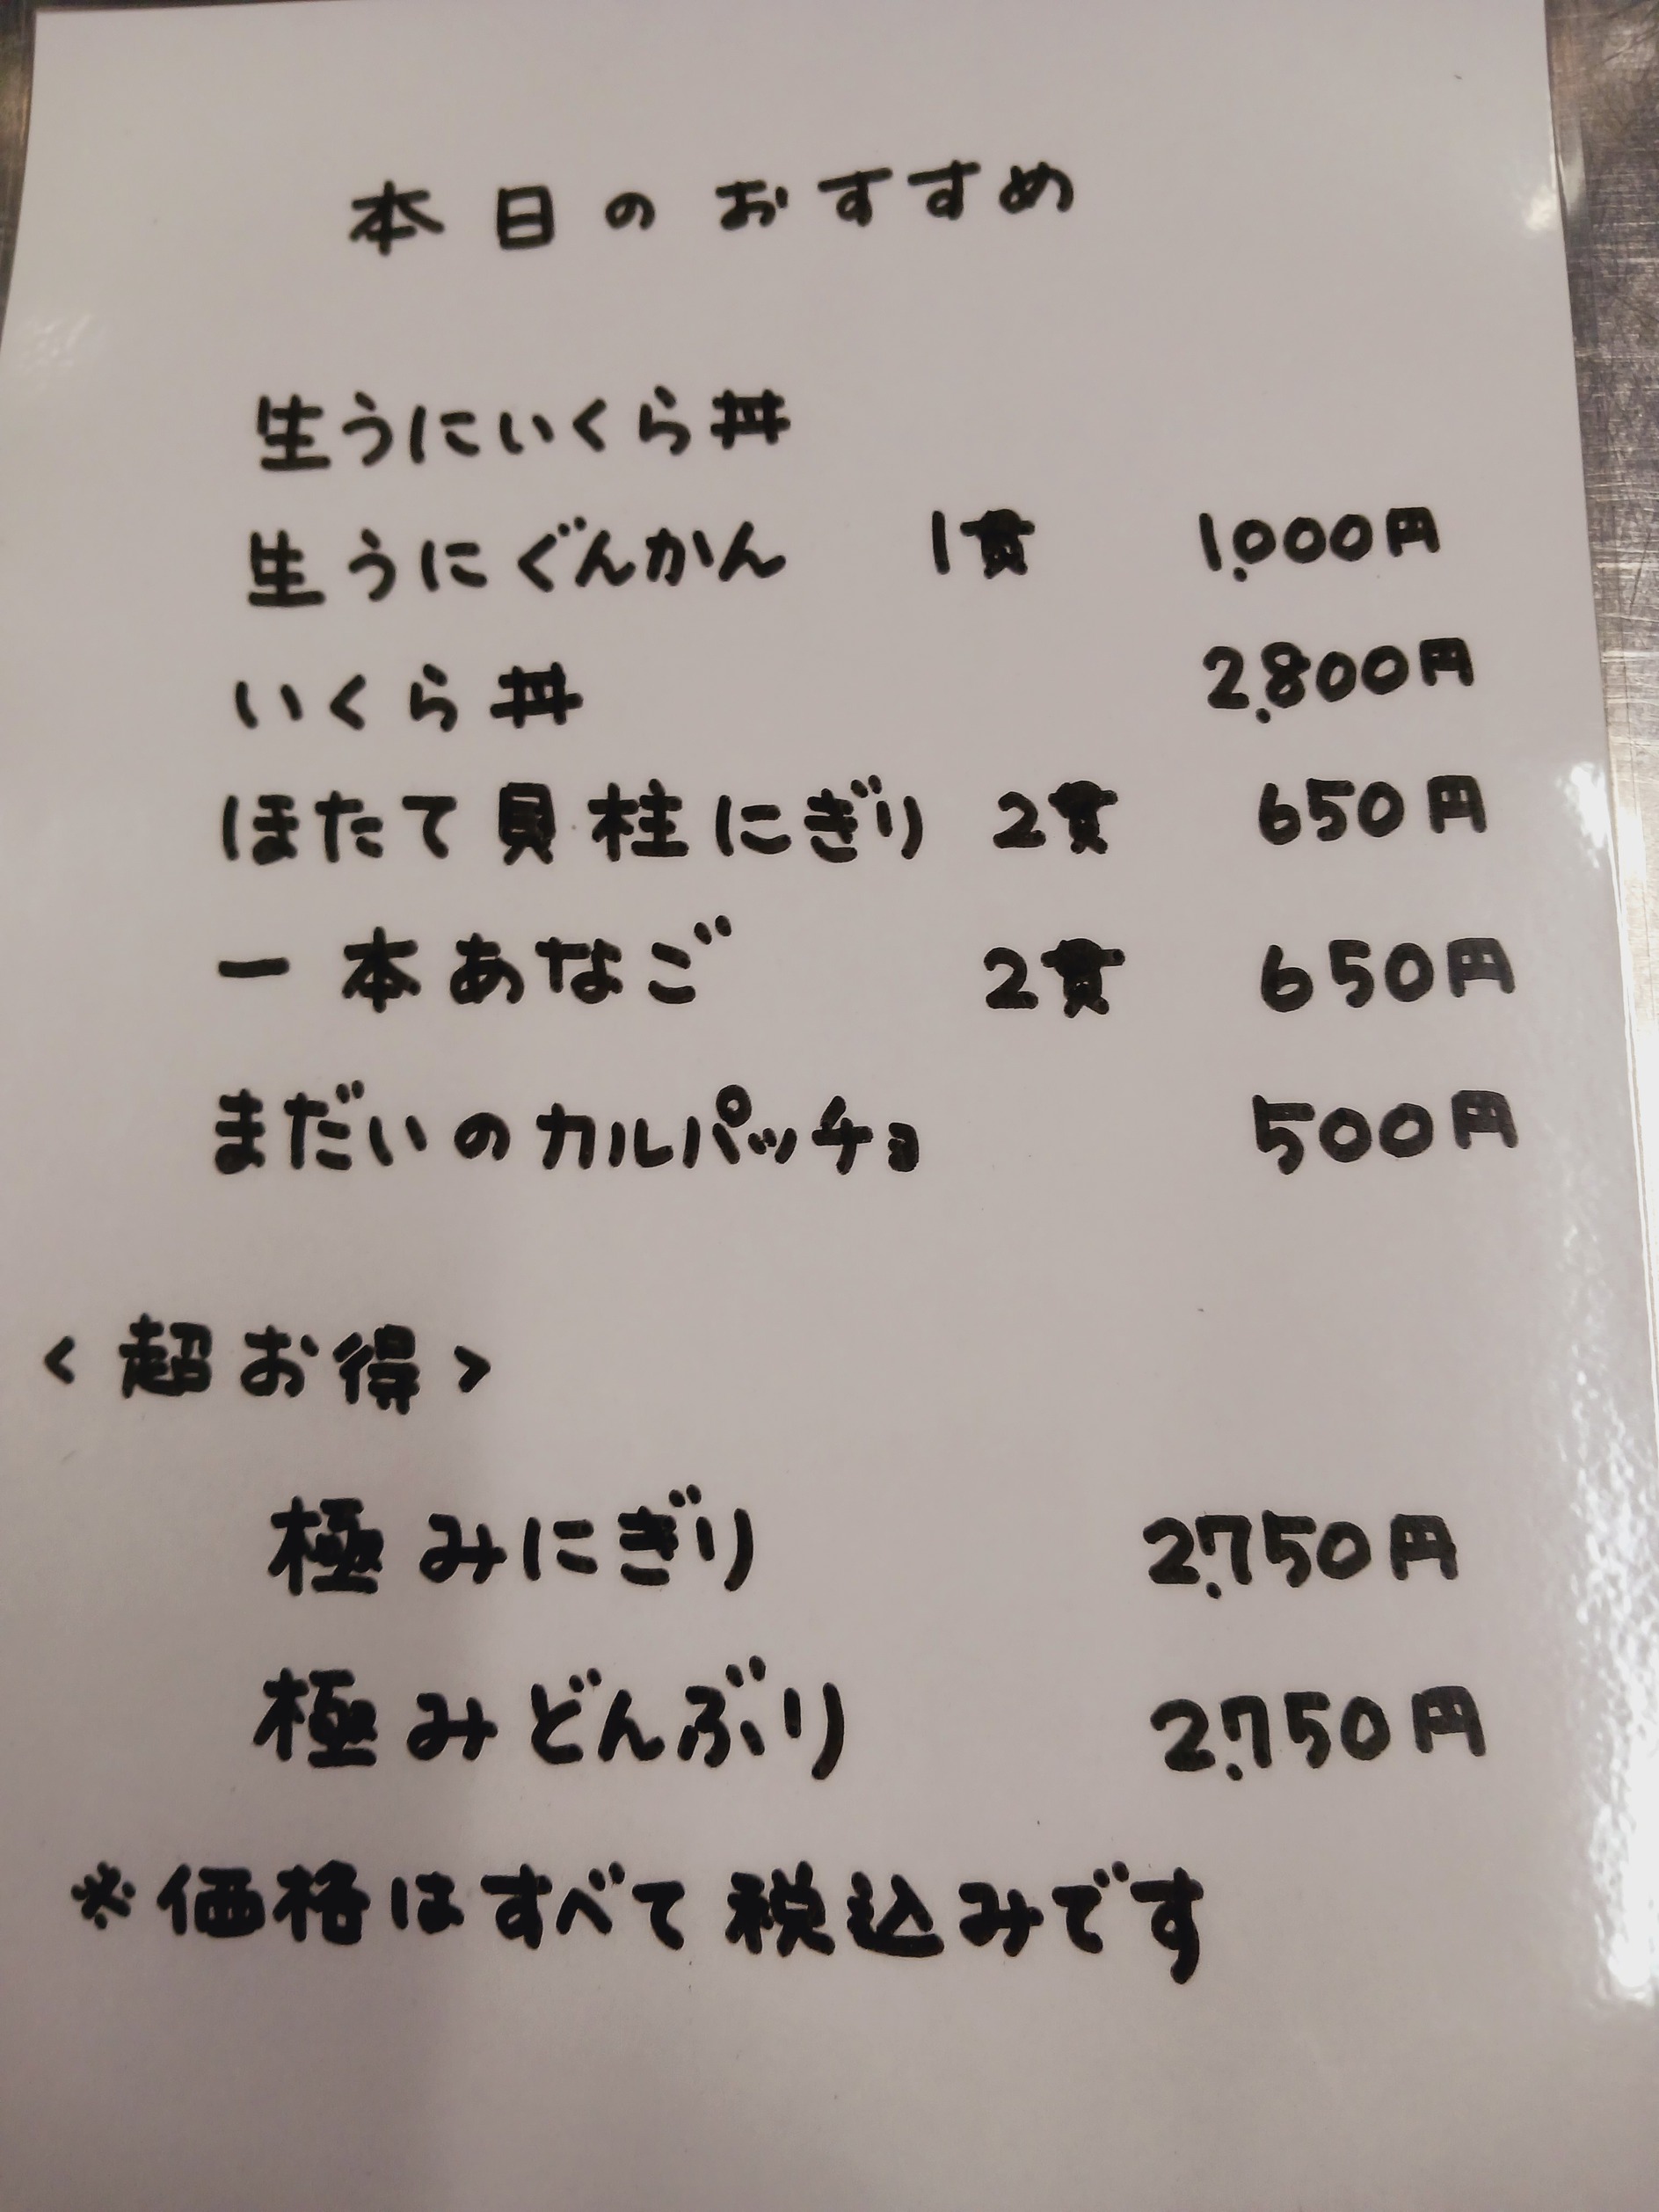 本日のおすすめ
生うにいくら丼
生うにぐんかん 1貫 1,000円
いくら丼 2,800円
ほたて貝柱にぎり 2貫 650円
一本あなご 2貫 650円
まだいのカルパッチョ 500円
<超お得>
極みにぎり 2,750円
極みどんぶり 2,750円
※価格はすべて税込みです